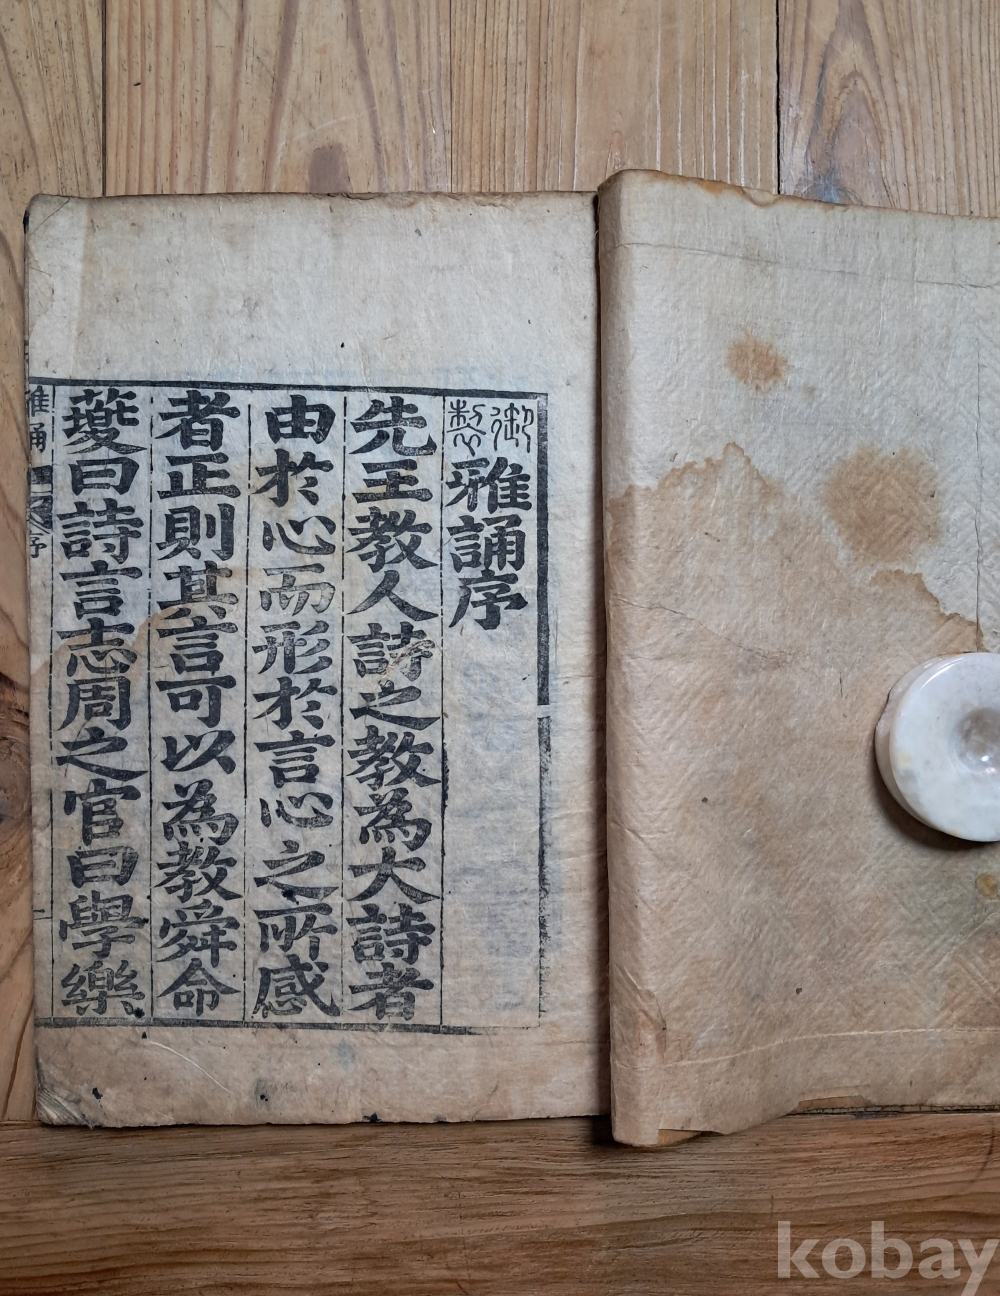 御製雅誦序
先王教人詩之教為大詩者
由於心而形於言心之所感
者正則其言可以為教舜命
夔曰詩言志周之官曰學樂
雅誦
序
kobay